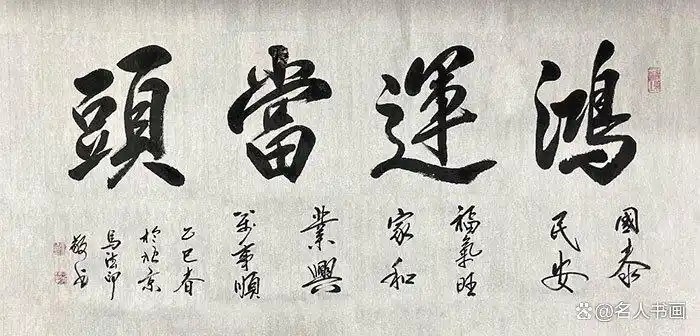 鴻運當頭
國泰
民安
福氣旺
家和
業興
萬事順
乙巳春
於北京
馬法印
敬書
@名人书画